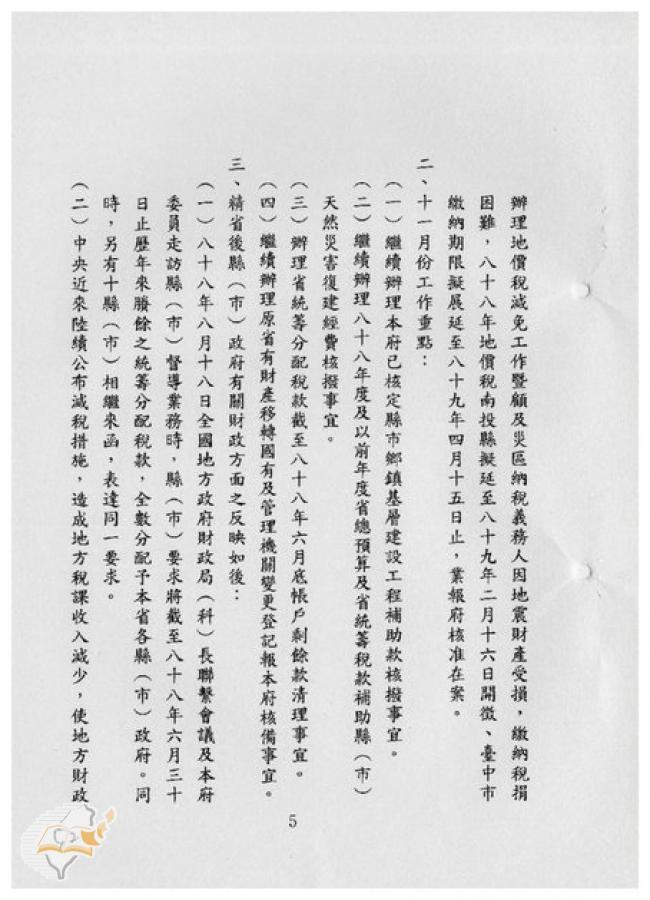 辦理地價稅減免工作暨顧及災區納稅義務人因地震財產受損，繳納稅捐
困難，八十八年地價稅南投縣擬延至八十九年二月十六日開徵、臺中市
繳納期限擬展延至八十九年四月十五日止，業報府核准在案。
二、十一月份工作重點：
（一）繼續辦理本府已核定縣市鄉鎮基層建設工程補助款核撥事宜。
（二）繼續辦理八十八年度及以前年度省總預算及省統籌稅款補助縣（市）
天然災害復建經費核撥事宜。
（三）辦理省統籌分配稅款截至八十八年六月底帳戶剩餘款清理事宜。
（四）繼續辦理原省有財產移轉國有及管理機關變更登記報本府核備事宜。
三、精省後縣（市）政府有關財政方面之反映如後：
（一）八十八年八月十八日全國地方政府財政局（科）長聯繫會議及本府
委員走訪縣（市）督導業務時，縣（市）要求將截至八十八年六月三十
日止歷年來賸餘之統籌分配稅款，全數分配予本省各縣（市）政府。同
時，另有十縣（市）相繼來函，表達同一要求。
（二）中央近來陸續公布減稅措施，造成地方稅課收入減少，使地方財政
5